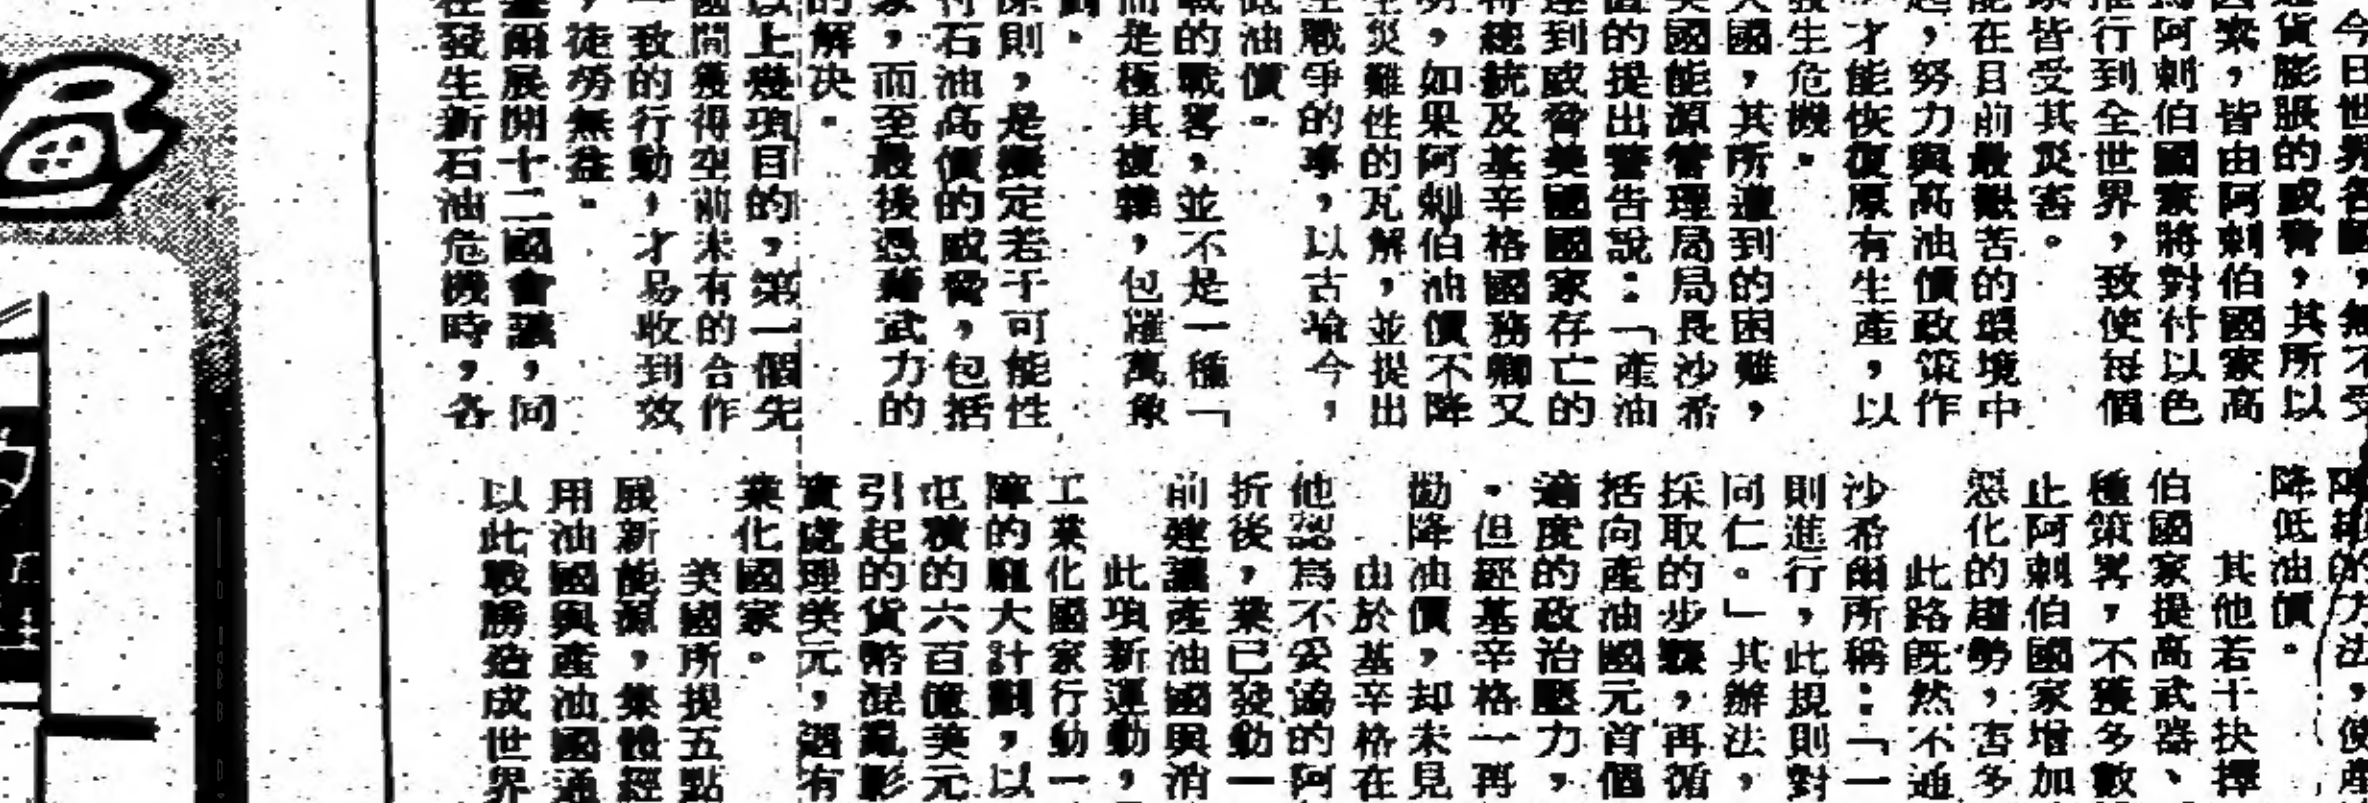 今日世界各國，無不受
貨膨脹的威脅，其所以
因素，皆由阿剌伯國家高
爲阿剌伯國家將對付以色
推行到全世界，致使每個
家皆受其災害。
能在目前最艱苦的環境中
起，努力與高油價政策作
，才能恢復原有生產，以
發生危機。
大國，其所遭到的困難，
美國能源管理局局長沙希
直的提出警告說：「產油
達到威脅美國國家存亡的
特總統及基辛格國務卿又
明，如果阿剌伯油價不降
生災難性的瓦解，並提出
生戰爭的事，以古喻今，
低油價。
戰的戰畧，並不是一種「
而是極其複雜，包羅萬象
劃。
原則，是擬定若干可能性
付石油高價的威脅，包括
家，而至最後憑藉武力的
的解決。
以上幾項目的，第一個先
國間獲得空前未有的合作
一致的行動，才易收到效
，徒勞無益。
塞爾展開十二國會議，同
在發生新石油危機時，各
的方法，使產
降低油價。
其他若干抉擇
伯國家提高武器、
種策畧，不獲多數
止阿剌伯國家增加
惡化的趨勢，害多
此路既然不通
沙希爾所稱：「一
則進行，此規則對
同仁。」其辦法，
採取的步驟，再循
括向產油國元首個
適度的政治壓力，
。但經基辛格一再
勸降油價，却未見
由於基辛格在
他認爲不妥協的阿
折後，業已發動一
前建議產油國與消
此項新運動，
工業化國家行動一
障的龐大計劃，以
屯積的六百億美元
引起的貨幣混亂影
實處理美元，遇有
業化國家。
美國所提五點
展新能源，集體經
用油國與產油國通
以此戰勝造成世界